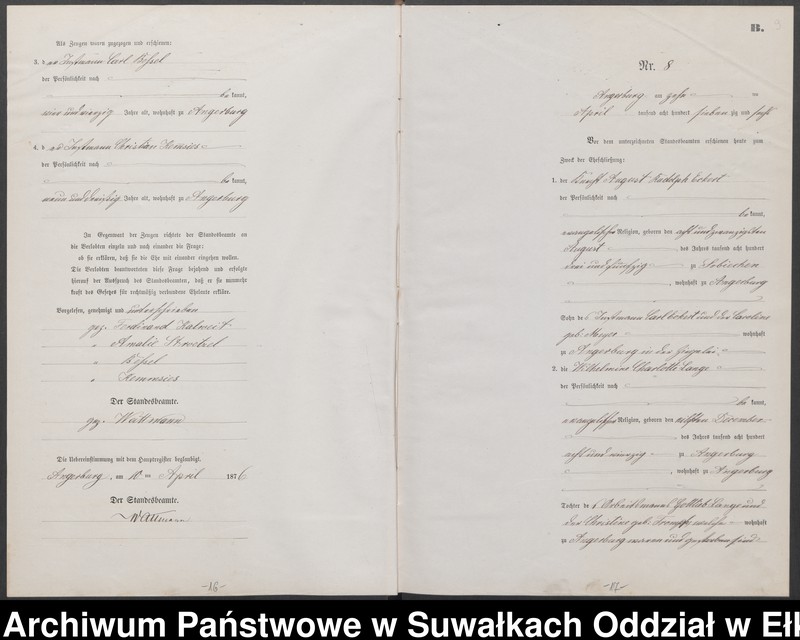 Als Zeugen waren zugezogen und erschienen:
3. der Instmann Carl Bessel
der Persönlichkeit nach
be kannt,
vier und vierzig Jahre alt, wohnhaft zu Angerburg
4. der Instmann Christian Kommies
der Persönlichkeit nach
be kannt,
neun und dreißig Jahre alt, wohnhaft zu Angerburg
In Gegenwart der Zeugen richtete der Standesbeamte an
die Verlobten einzeln und nach einander die Frage:
ob sie erklären, daß sie die Ehe mit einander eingehen wollen.
Die Verlobten beantworteten diese Frage bejahend und erfolgte
hierauf der Ausspruch des Standesbeamten, daß er sie nunmehr
kraft des Gesetzes für rechtmäßig verbundene Eheleute erkläre.
Vorgelesen, genehmigt und unterschrieben
gez. Ferdinand
" Amalie
" Bessel
" Kommies
Der Standesbeamte.
gez. Wattmann
Die Uebereinstimmung mit dem Hauptregister beglaubigt.
Angerburg, am 10 ten April 1876
Der Standesbeamte.
Wattmann
-16-
B.
9
Nr. 8
Angerburg am
April tausend acht hundert sieben zig und sechs
Vor dem unterzeichneten Standesbeamten erschienen heute zum
Zweck der Eheschließung:
1. der Knecht August Rudolph Eckert
der Persönlichkeit nach
be kannt,
evangelischer Religion, geboren den acht und zwanzigsten
August des Jahres tausend acht hundert
drei und fünfzig zu Sobiechen
, wohnhaft zu Angerburg
Sohn des Instmann Carl Eckert und der Caroline
geb. Meyer wohnhaft
zu Angerburg in der
2. die Wilhelmine Charlotte Lange
der Persönlichkeit nach
be kannt,
evangelischer Religion, geboren den elften December
, des Jahres tausend acht hundert
acht und vierzig zu Angerburg
, wohnhaft zu Angerburg
Tochter des Arbeitsmann Gottlieb Lange und
der Christine geb. welche wohnhaft
zu Angerburg waren und gestorben sind
-17-
Archiwum Państwowe w Suwałkach Oddział w Eł